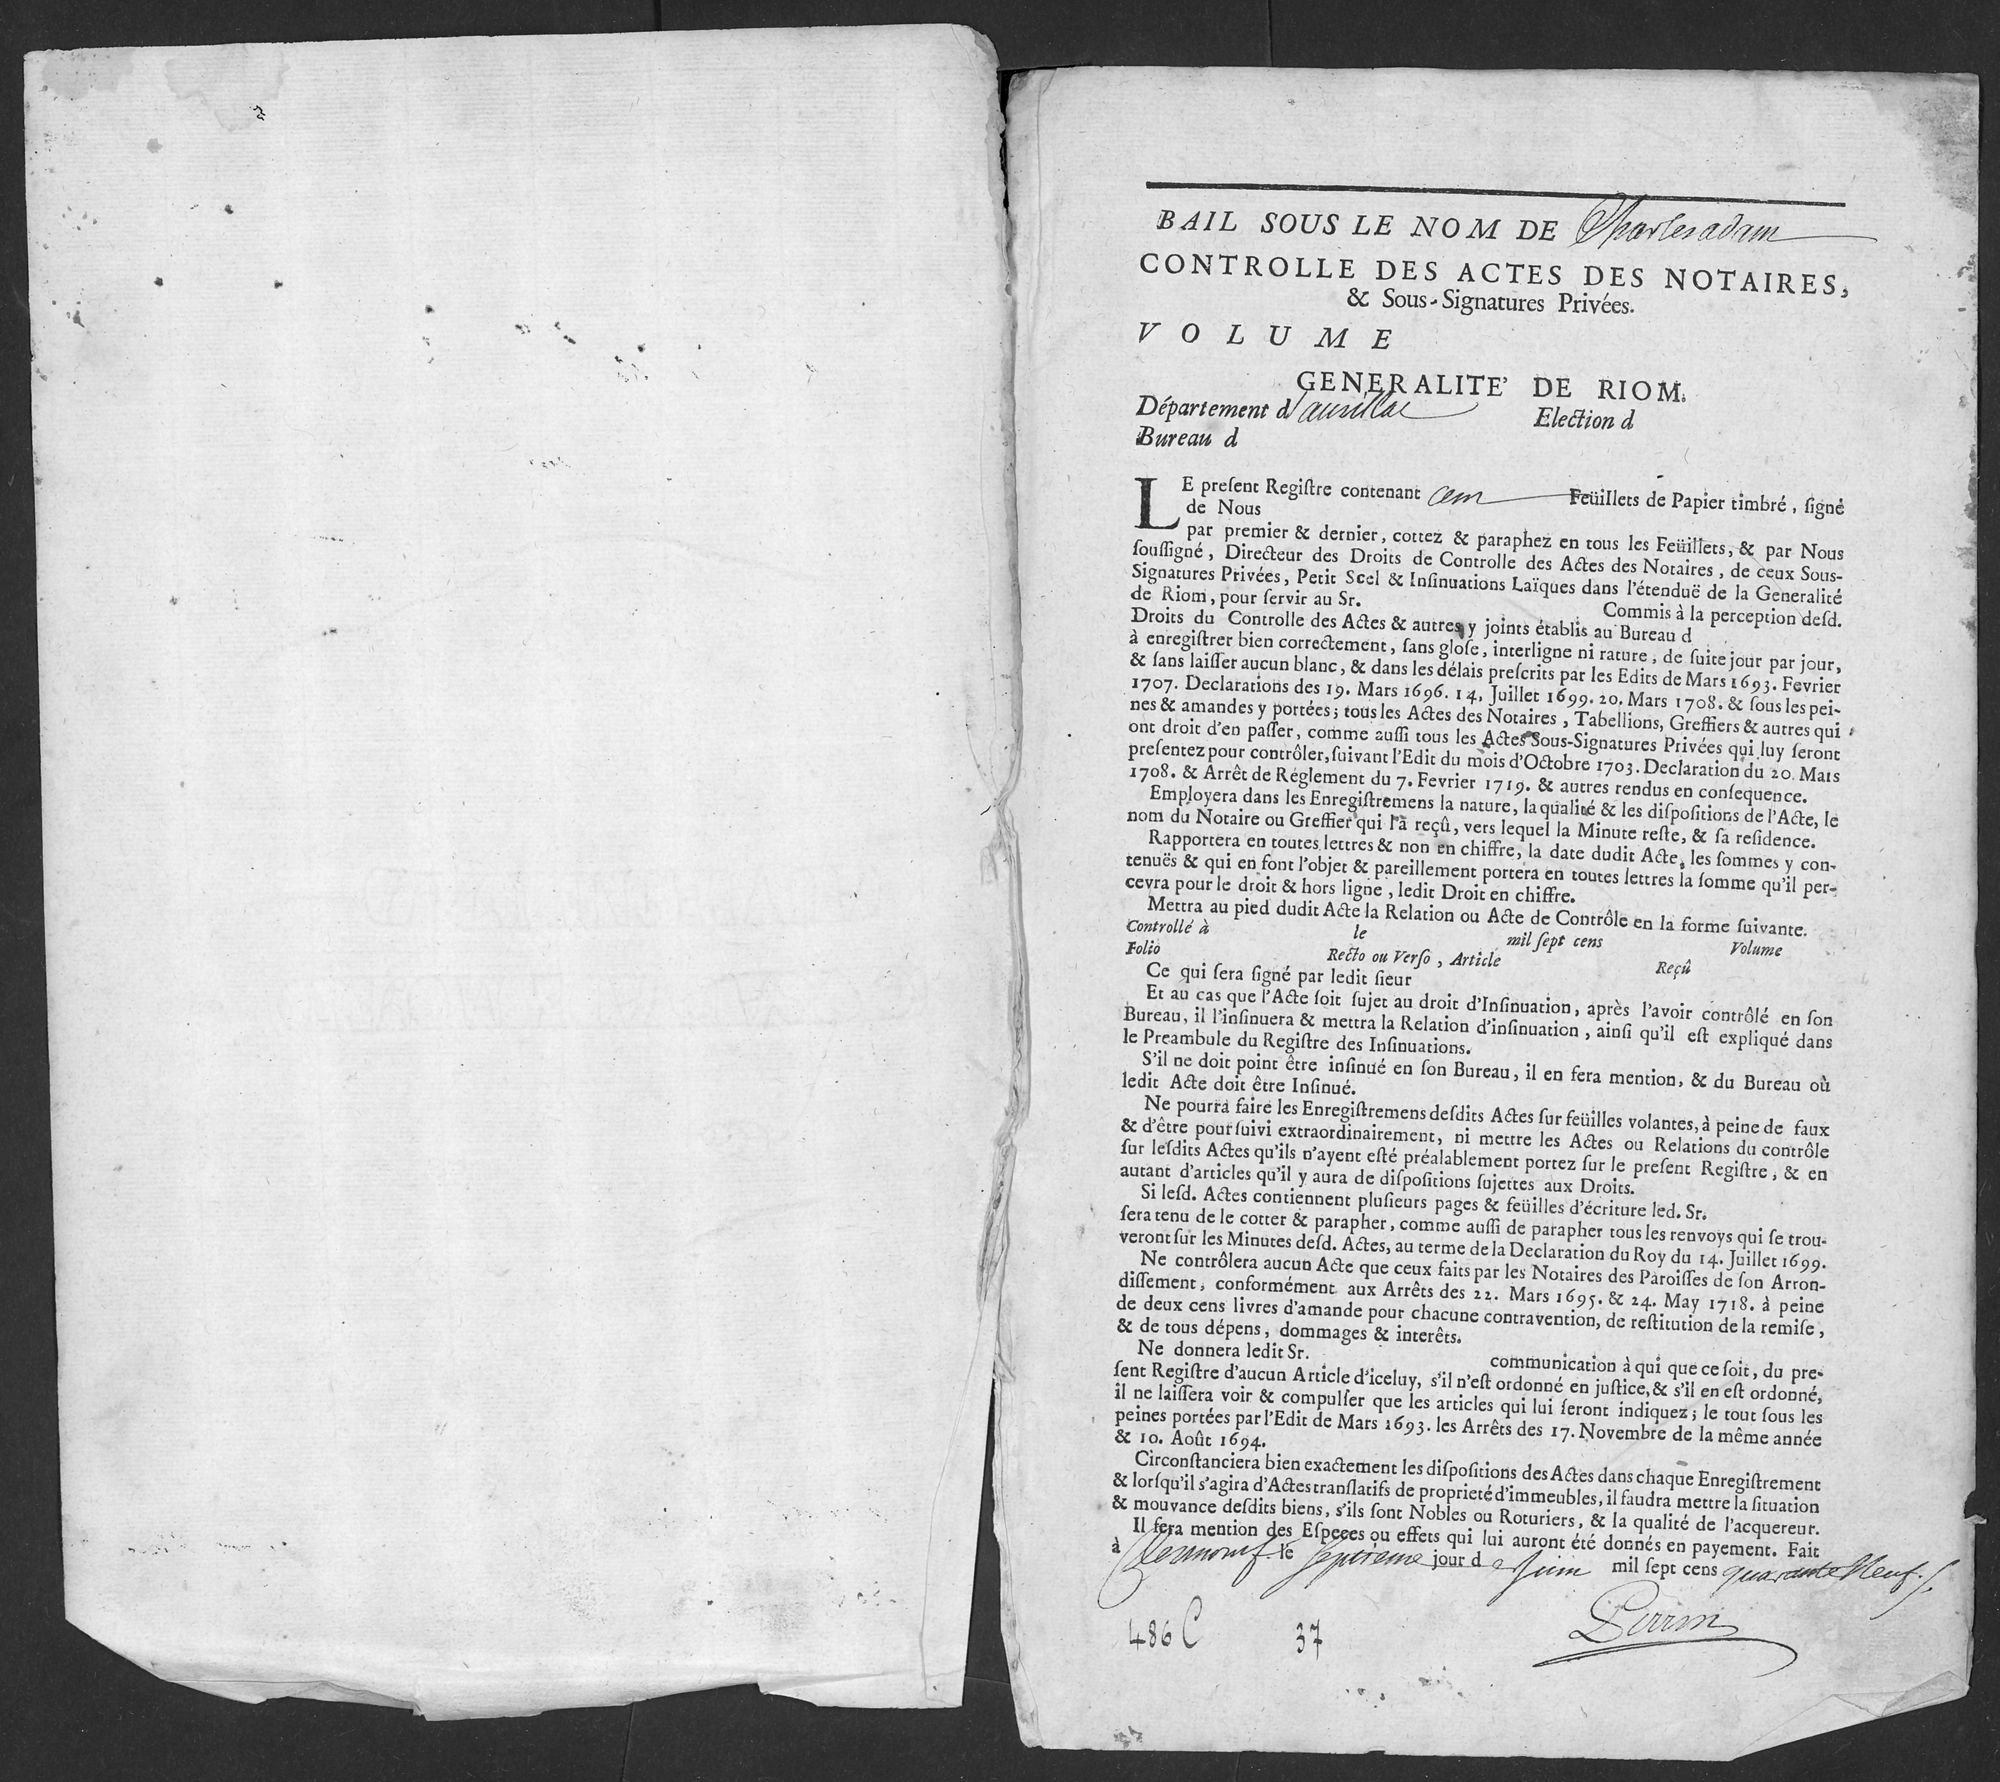 BAIL SOUS LE NOM DE Charles adam
CONTROLLE DES ACTES DES NOTAIRES,
& Sous-Signatures Privées.
VOLUME
GENERALITE' DE RIOM.
Département d'aurillac Election d
Bureau d
LE preſent Regiſtre contenant cent Feüillets de Papier timbré, ſigné
de Nous
par premier & dernier, cottez & paraphez en tous les Feüillets, & par Nous
ſouſſigné, Directeur des Droits de Controlle des Actes des Notaires, de ceux Sous-
Signatures Privées, Petit Scel & Inſinuations Laïques dans l'étenduë de la Generalité
de Riom, pour ſervir au Sr. Commis à la perception deſd.
Droits du Controlle des Actes & autres y joints établis au Bureau d
à enregiſtrer bien correctement, ſans gloſe, interligne ni rature, de ſuite jour par jour,
& ſans laiſſer aucun blanc, & dans les délais preſcrits par les Edits de Mars 1693. Fevrier
1707. Declarations des 19. Mars 1696. 14. Juillet 1699. 20. Mars 1708. & ſous les pei-
nes & amandes y portées; tous les Actes des Notaires, Tabellions, Greffiers & autres qui
ont droit d'en paſſer, comme auſſi tous les Actes Sous-Signatures Privées qui luy ſeront
preſentez pour contrôler, ſuivant l'Edit du mois d'Octobre 1703. Declaration du 20. Mars
1708. & Arrêt de Réglement du 7. Fevrier 1719. & autres rendus en conſequence.
Employera dans les Enregiſtremens la nature, la qualité & les diſpoſitions de l'Acte, le
nom du Notaire ou Greffier qui l'a reçû, vers lequel la Minute reſte, & ſa reſidence.
Rapportera en toutes lettres & non en chiffre, la date dudit Acte, les ſommes y con-
tenuës & qui en font l'objet & pareillement portera en toutes lettres la ſomme qu'il per-
cevra pour le droit & hors ligne, ledit Droit en chiffre.
Mettra au pied dudit Acte la Relation ou Acte de Contrôle en la forme ſuivante.
Controllé à le mil ſept cens Volume
Folio Recto ou Verſo, Article Reçû
Ce qui ſera ſigné par ledit ſieur
Et au cas que l'Acte ſoit ſujet au droit d'Inſinuation, après l'avoir contrôlé en ſon
Bureau, il l'inſinuera & mettra la Relation d'inſinuation, ainſi qu'il eſt expliqué dans
le Preambule du Regiſtre des Inſinuations.
S'il ne doit point être inſinué en ſon Bureau, il en fera mention, & du Bureau où
ledit Acte doit être Inſinué.
Ne pourra faire les Enregiſtremens deſdits Actes ſur feüilles volantes, à peine de faux
& d'être pourſuivi extraordinairement, ni mettre les Actes ou Relations du contrôle
ſur leſdits Actes qu'ils n'ayent eſté préalablement portez ſur le preſent Regiſtre, & en
autant d'articles qu'il y aura de diſpoſitions ſujettes aux Droits.
Si leſd. Actes contiennent pluſieurs pages & feüilles d'écriture led. Sr.
ſera tenu de le cotter & parapher, comme auſſi de parapher tous les renvoys qui ſe trou-
veront ſur les Minutes deſd. Actes, au terme de la Declaration du Roy du 14. Juillet 1699.
Ne contrôlera aucun Acte que ceux faits par les Notaires des Paroiſſes de ſon Arron-
diſſement, conformément aux Arrêts des 22. Mars 1695. & 24. May 1718. à peine
de deux cens livres d'amande pour chacune contravention, de reſtitution de la remiſe,
& de tous dépens, dommages & interêts.
Ne donnera ledit Sr. communication à qui que ce ſoit, du pre-
ſent Regiſtre d'aucun Article d'iceluy, s'il n'eſt ordonné en juſtice, & s'il en eſt ordonné,
il ne laiſſera voir & compulſer que les articles qui lui ſeront indiquez; le tout ſous les
peines portées par l'Edit de Mars 1693. les Arrêts des 17. Novembre de la même année
& 10. Août 1694.
Circonſtanciera bien exactement les diſpoſitions des Actes dans chaque Enregiſtrement
& lorſqu'il s'agira d'Actes tranſlatifs de proprieté d'immeubles, il faudra mettre la ſituation
& mouvance deſdits biens, s'ils ſont Nobles ou Roturiers, & la qualité de l'acquereur.
Il fera mention des Eſpeces ou effets qui lui auront été donnés en payement. Fait
à Clermont le septieme jour de Juin mil ſept cens quarante Neuf.
Perrin
486 C 37